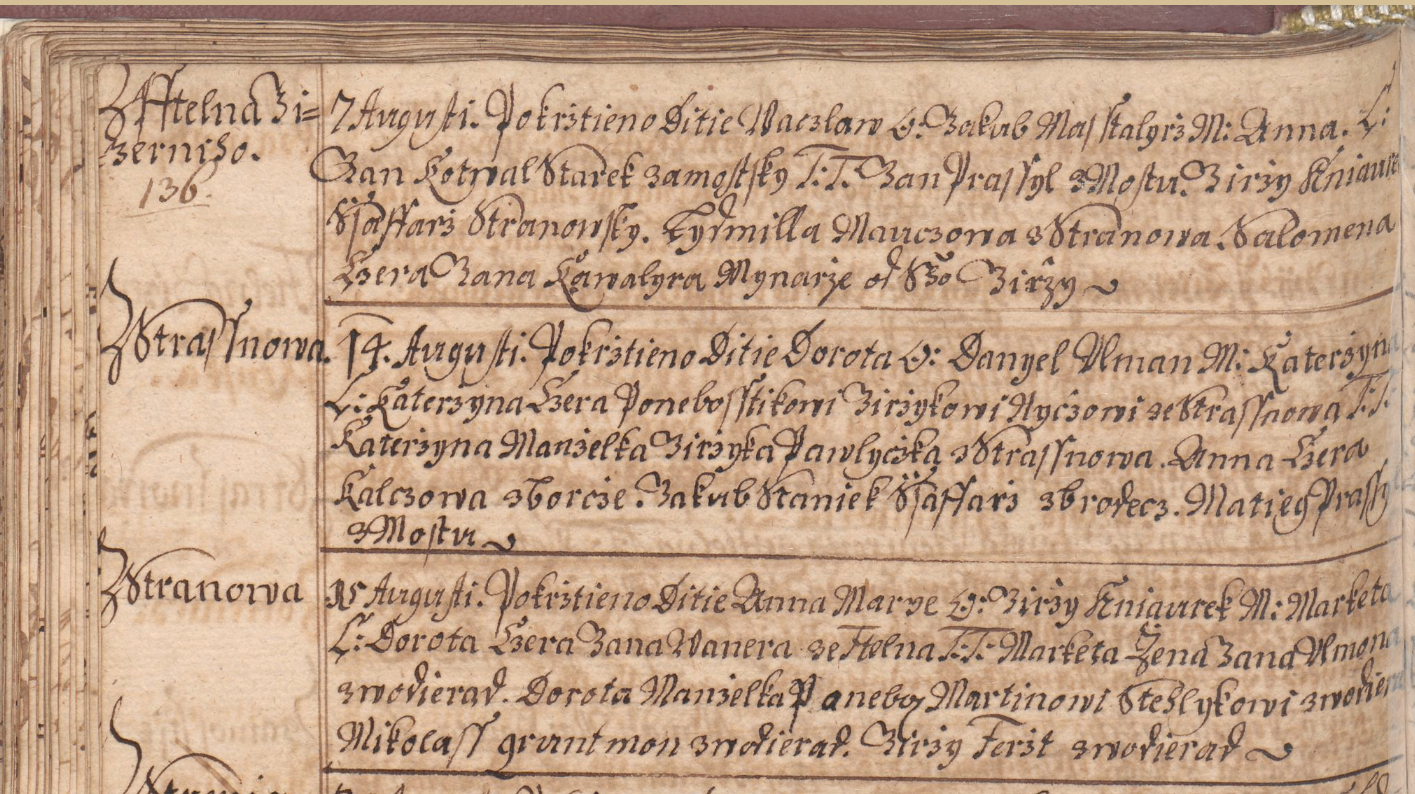 Zfftelna Zi=
zerniho.
136.
7 Augusti. Pokrztieno Ditie Waczlaw O: Jakub Masstalyrz M: Anna. L:
Jan Kotwal Starek zamostsky T.T. Jan Prassyl z Mostu. Jirzy Kniaurek
Ssaffarz Stranowsky. Lydmilla Mauczowa z Stranowa. Salomena
Czera Jana Kawalyra Mynarze od Sło Jirzy
Z Strassnowa.
14. Augusti. Pokrztieno Ditie Dorota O: Danyel Ulman M: Katerzyna
L: Katerzyna Czera Ponebosstikowi Jirzykowi Nyczowi ze Strassnowa T.T.
Katerzyna Manzelka Jirzyka Pawlyczka z Strassnowa. Anna Czera
Kalczowa zborcze. Jakub Staniek Ssaffarz zbrodecz. Matieg Prassy
z Mostu
Z Stranowa
15 Augusti. Pokrztieno Ditie Anna Marye O: Jirzy Kniaurek M: Marketa
L: Dorota Czera Jana Wanera ze Ftelna T.T. Marketa Zena Jana Ulmona
zwodierad. Dorota Manzelka Paneboz Martinowi Stehlykowi zwodierad
Mikolass gruntmon zwodierad. Jirzy Ferst zwodierad